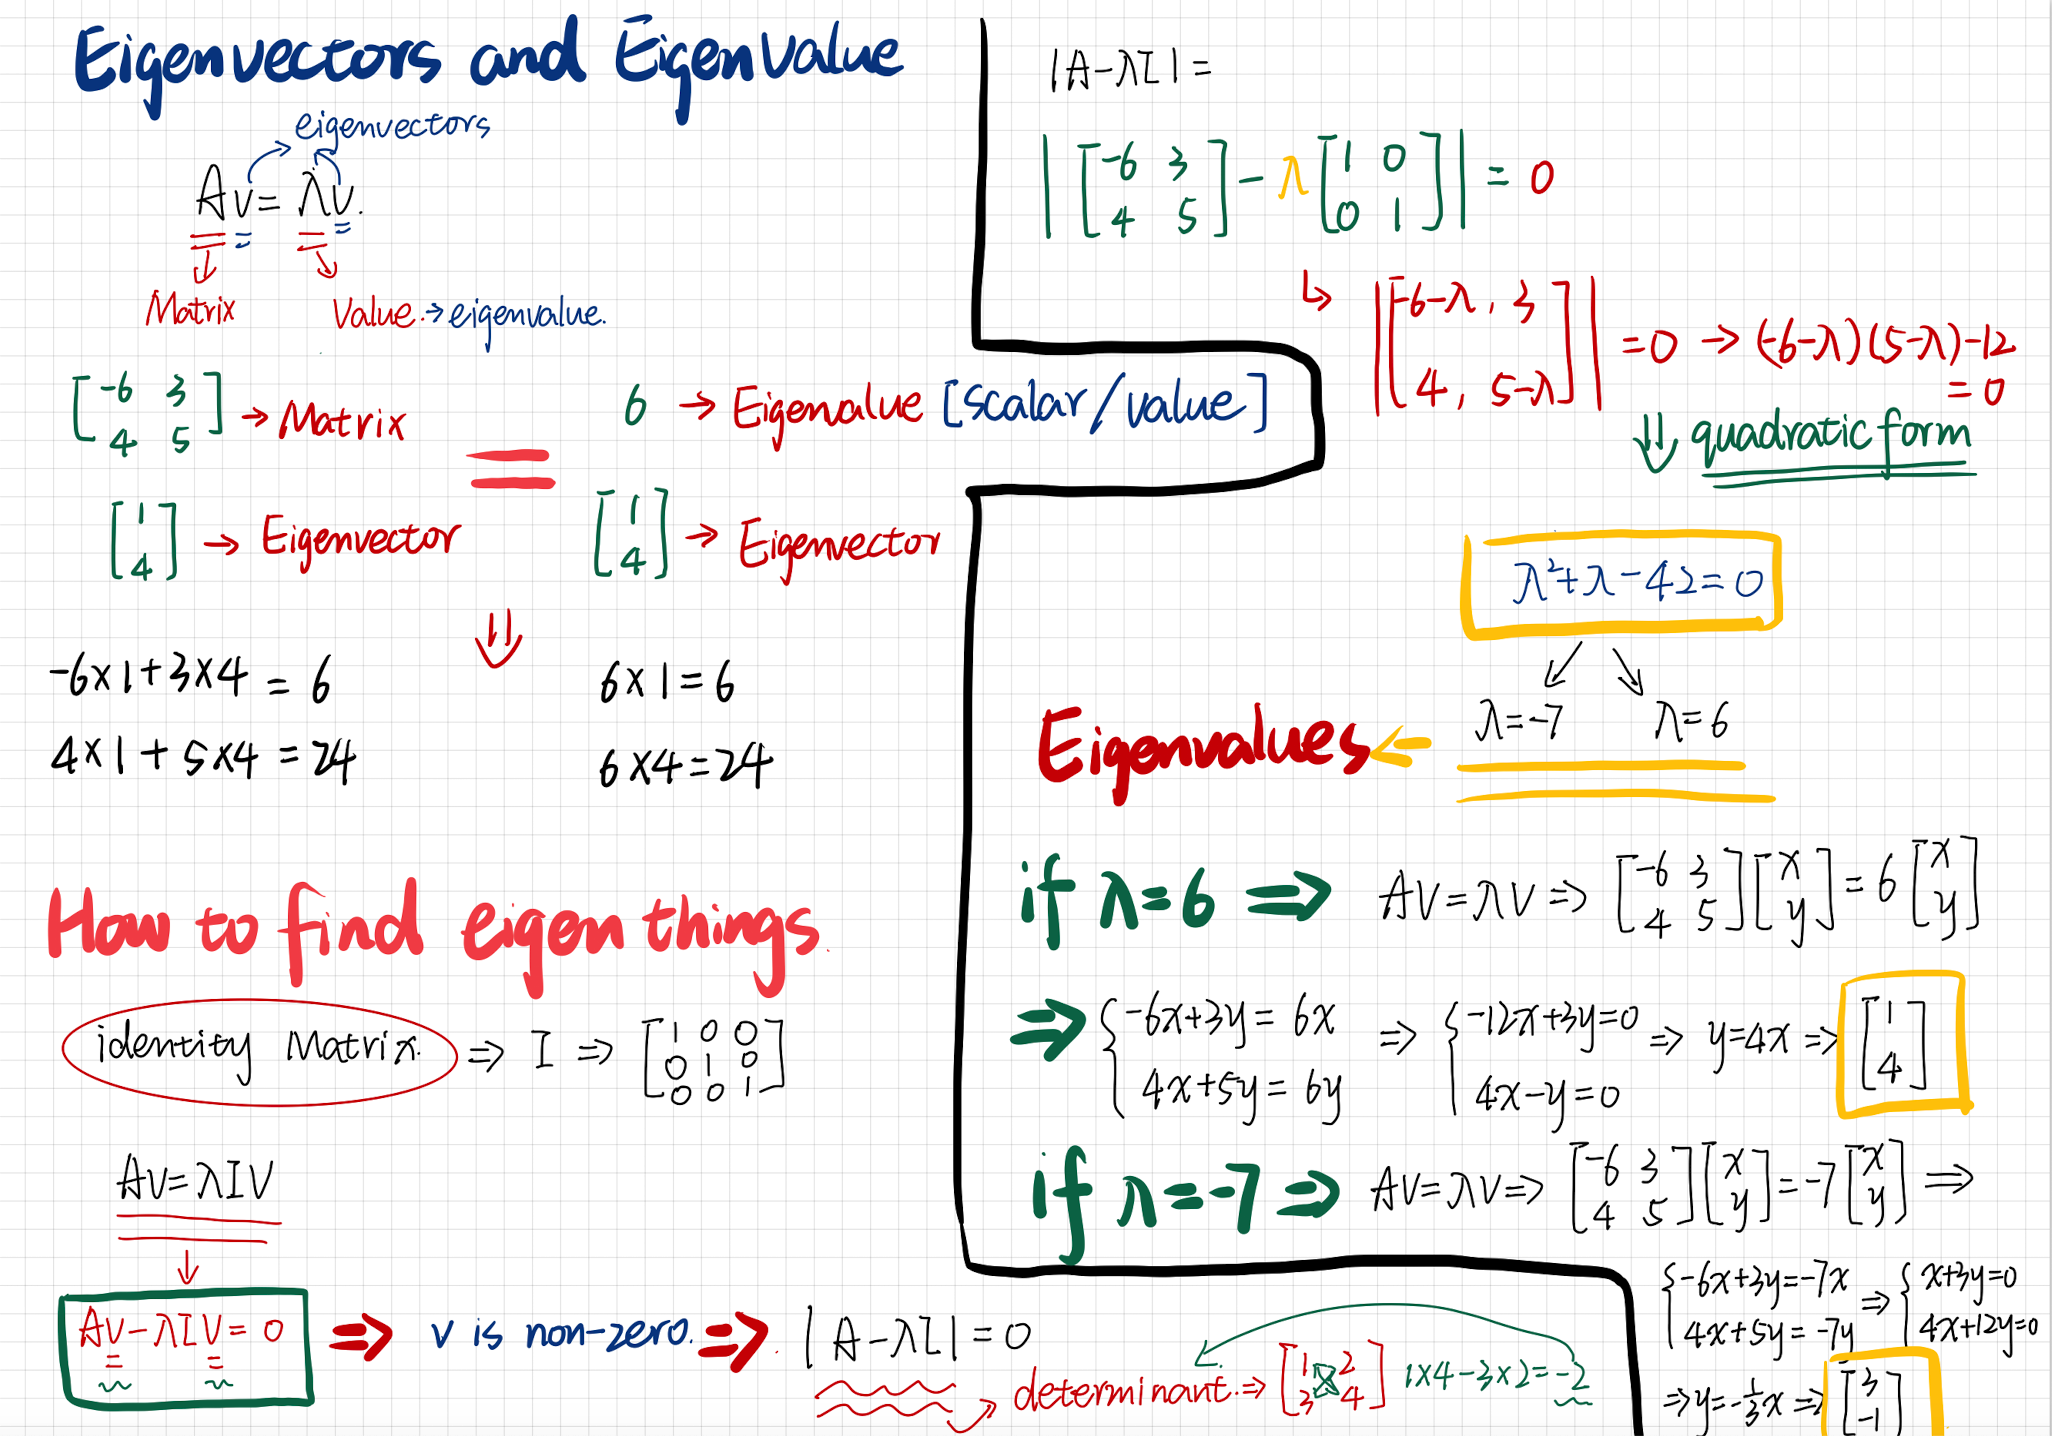 Eigenvectors and EigenValue
eigenvectors
Av = λv.
Matrix
Value. → eigenvalue.
[-6 3
4 5] → Matrix
6 → Eigenvalue [scalar/value]
=
[1
4] → Eigenvector
[1
4] → Eigenvector
⇓
-6×1+3×4 = 6
6×1=6
4×1+5×4=24
6×4=24
How to find eigen things.
identity Matrix. ⇒ I ⇒ [1 0 0
0 1 0
0 0 1]
Av=λIV
↓
AV-λIV=0 ⇒ v is non-zero. ⇒ |A-λI|=0
determinant. ⇒ [1 2
3 4] 1×4-3×2=-2
|A-λI|=
|[-6 3
4 5] - λ[1 0
0 1]| = 0
↳ |[-6-λ, 3
4, 5-λ]| =0 → (-6-λ)(5-λ)-12
=0
⇓ quadratic form
λ²+λ-42=0
λ=-7 λ=6
Eigenvalues ←
if λ=6 ⇒ AV=λV ⇒ [-6 3
4 5][x
y] = 6[x
y]
⇒ {-6x+3y=6x
4x+5y=6y
⇒ {-12x+3y=0
4x-y=0
⇒ y=4x ⇒ [1
4]
if λ=-7 ⇒ AV=λV ⇒ [-6 3
4 5][x
y]=-7[x
y] ⇒
{-6x+3y=-7x
4x+5y=-7y
⇒ {x+3y=0
4x+12y=0
⇒ y=-1/3x ⇒ [3
-1]